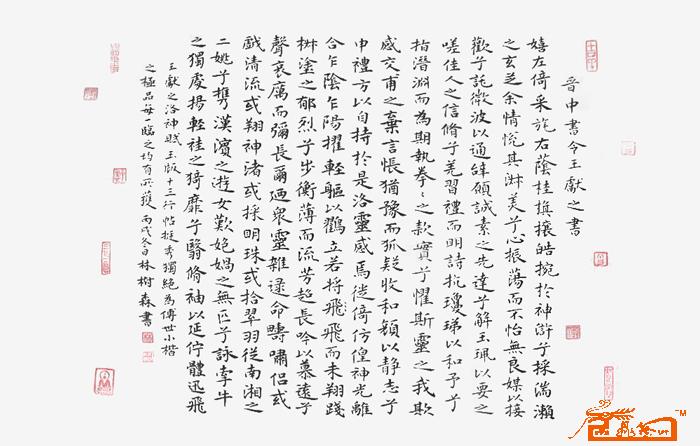 晉中書令王獻之書
嬉左倚采旄右蔭桂旗攘皓捥於神滸兮採湍瀨
之玄芝余情悅其淋美兮心振蕩而不怡無良媒以接
歡兮託微波以通辝願誠素之先達兮解玉珮以要之
嗟佳人之信脩兮羌習禮而明詩抗瓊珶以和予兮
指潛淵而為期執拳〻之款實兮懼斯靈之我欺
感交甫之棄言悵猶豫而狐疑收和顏以静志兮
申禮方以自持於是洛靈感焉徙倚仿偟神光離
合乍陰乍陽擢輕軀以鶴立若將飛飛而未翔踐
椒塗之郁烈兮步衡薄而流芳超長吟以慕遠兮
聲哀厲而彌長爾迺衆靈雜遝命疇嘯侶或
戲清流或翔神渚或採明珠或拾翠羽從南湘之
二姚兮攜漢濱之遊女歎匏媧之無匹兮詠牽牛
之獨處揚輕袿之猗靡兮翳脩袖以延佇體迅飛
王獻之洛神賦玉版十三行帖挺秀獨絕為傳世小楷
之極品每一臨之均有所獲丙戌冬日林樹森書